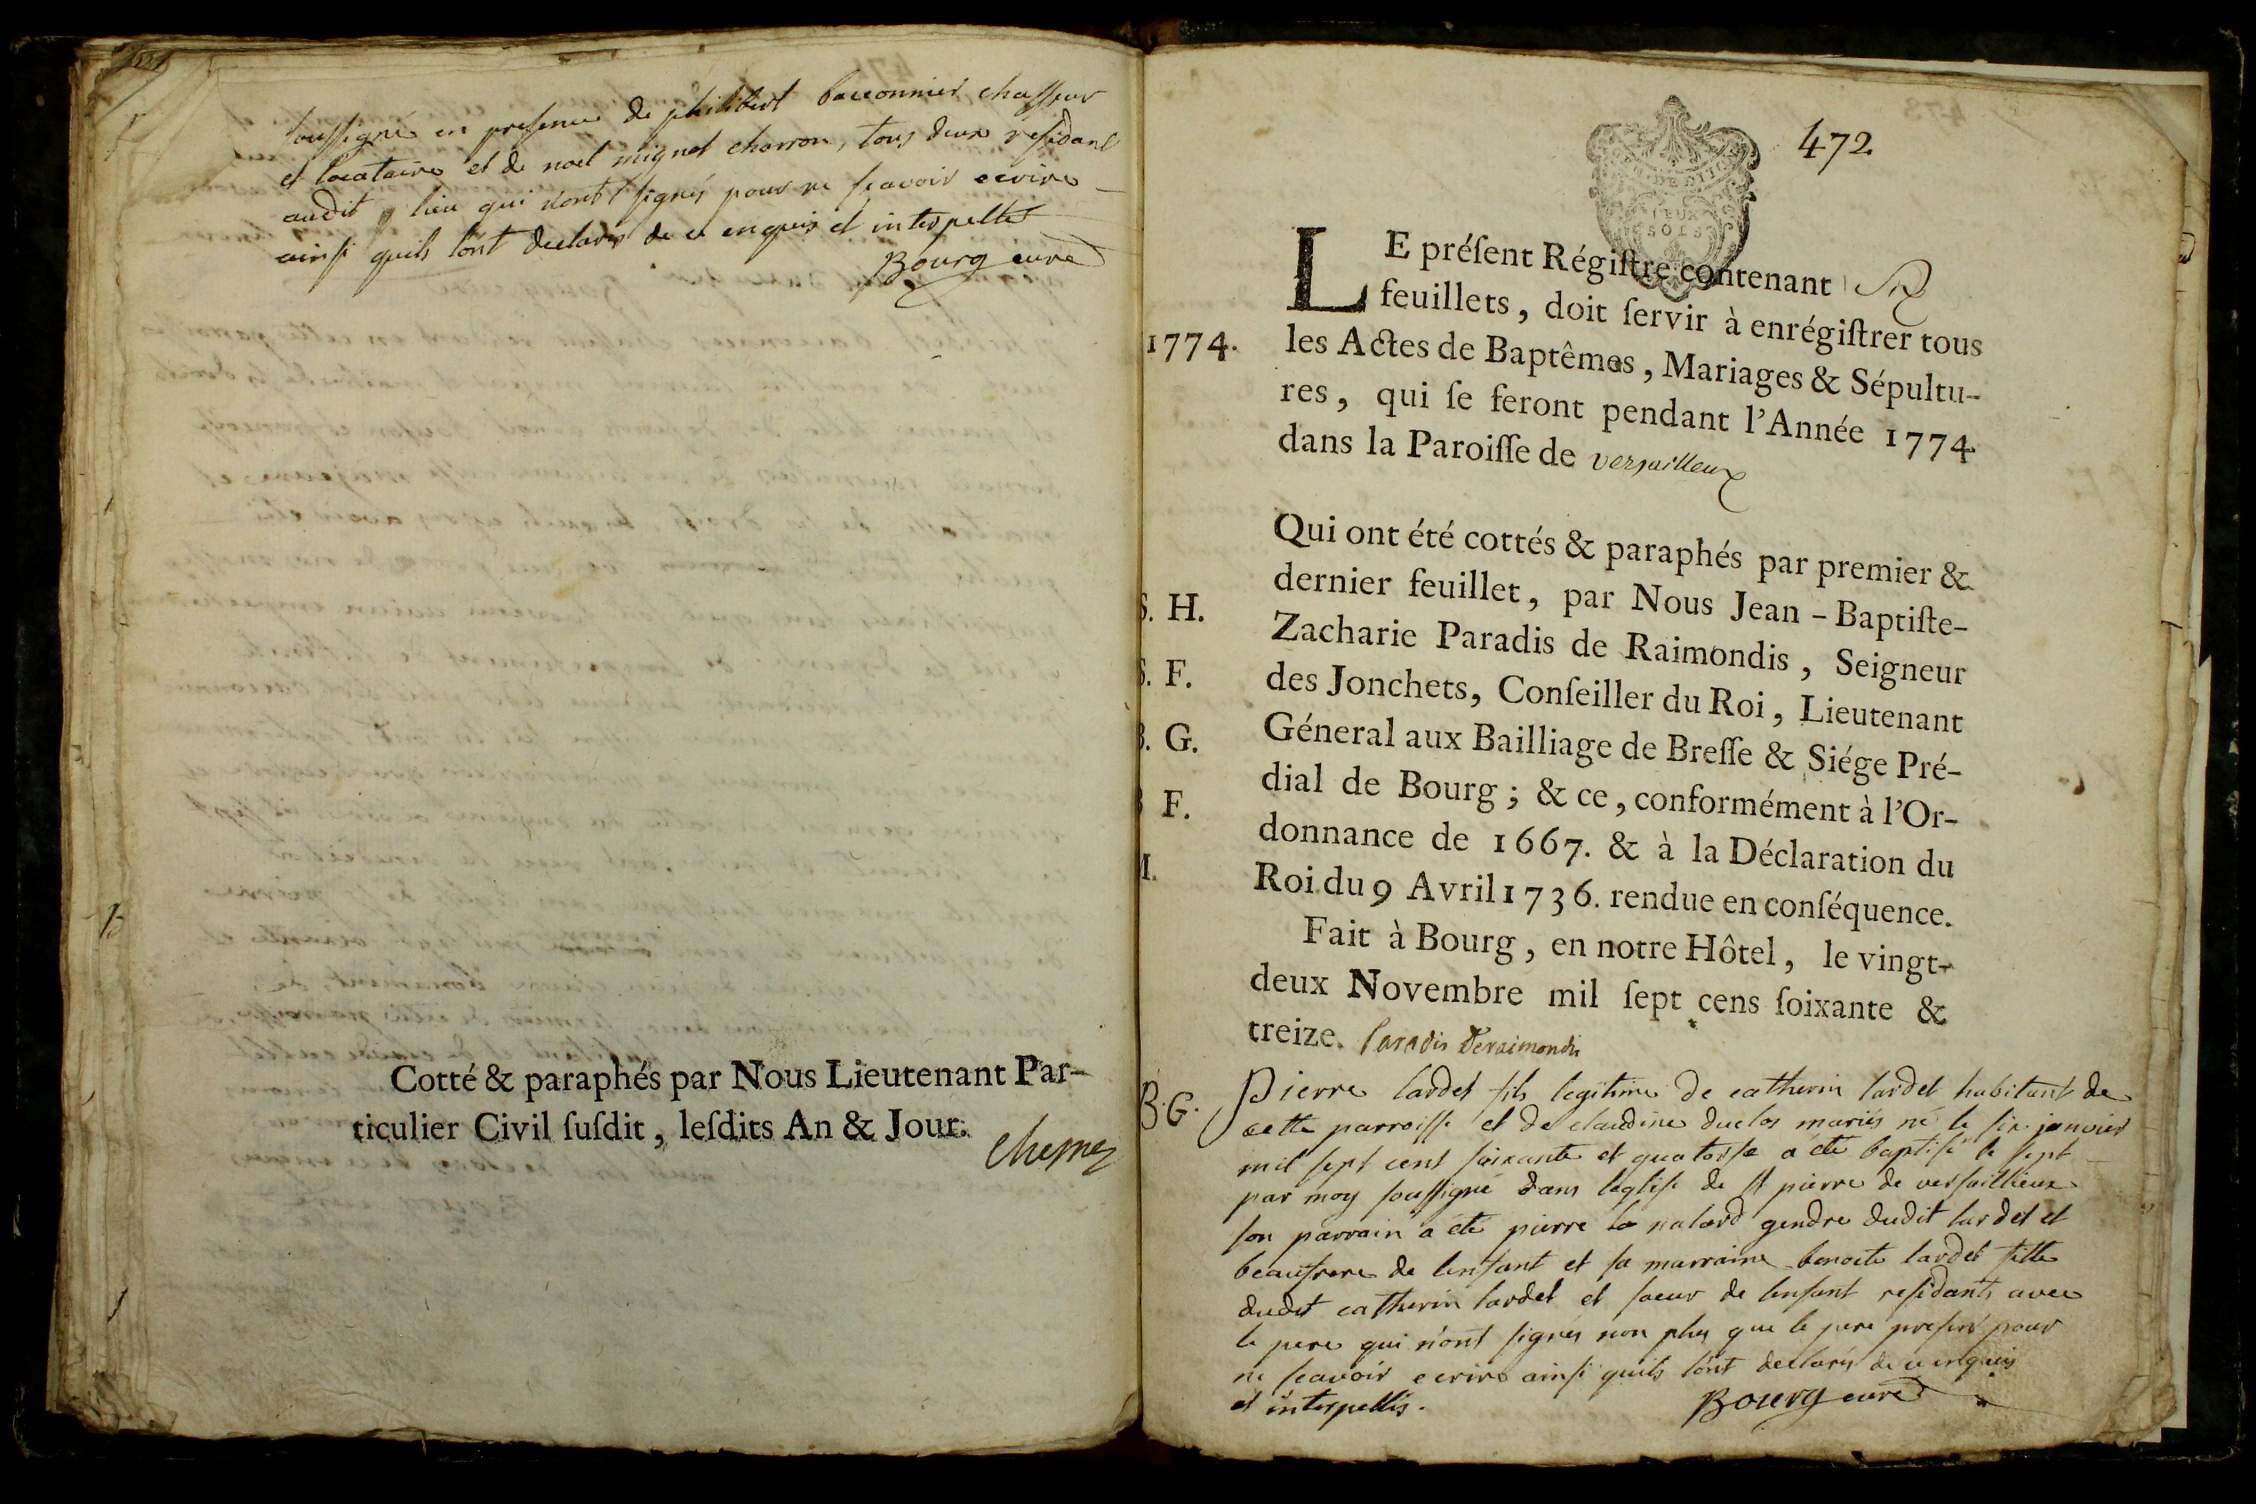 soussigné en presence de philibert baconnier chasseur
et locataire et de noel mignot charron, tous deux residants
audit lieu qui n'ont signés pour ne scavoir ecrire
ainsi quils l'ont declarés de ce enquis et interpellés
Bourg curé
Cotté & paraphés par Nous Lieutenant Par-
ticulier Civil suſdit, leſdits An & Jour.
472
DEUX
SOLS
LE préſent Régiſtre contenant six
feuillets, doit ſervir à enrégiſtrer tous
1774. les Actes de Baptêmes, Mariages & Sépultu-
res, qui ſe feront pendant l'Année 1774
dans la Paroiſſe de versailleux
Qui ont été cottés & paraphés par premier &
dernier feuillet, par Nous Jean-Baptiſte-
S. H. Zacharie Paradis de Raimondis, Seigneur
S. F. des Jonchets, Conſeiller du Roi, Lieutenant
B. G. Géneral aux Bailliage de Breſſe & Siége Pré-
F. dial de Bourg; & ce, conformément à l'Or-
donnance de 1667. & à la Déclaration du
M. Roi du 9 Avril 1736. rendue en conſéquence.
Fait à Bourg, en notre Hôtel, le vingt-
deux Novembre mil ſept cens ſoixante &
treize. Paradis Deraimondis
B. G. Pierre lardet fils legitime de catherin lardet habitant de
cette parroisse et de claudine duclos mariés né le six janvier
mil sept cent soixante et quatorse a été baptisé le sept
par moy soussigné dans leglise de st pierre de versaillieux
son parrain a été pierre nalard gendre dudit lardet et
beaufrere de lenfant et sa marraine benoite lardet fille
dudit catherin lardet et soeur de lenfant residants avec
le pere qui n'ont signés non plus que le pere present pour
ne scavoir ecrire ainsi quils l'ont declarés de ce enquis
et interpellés.
Bourg curé